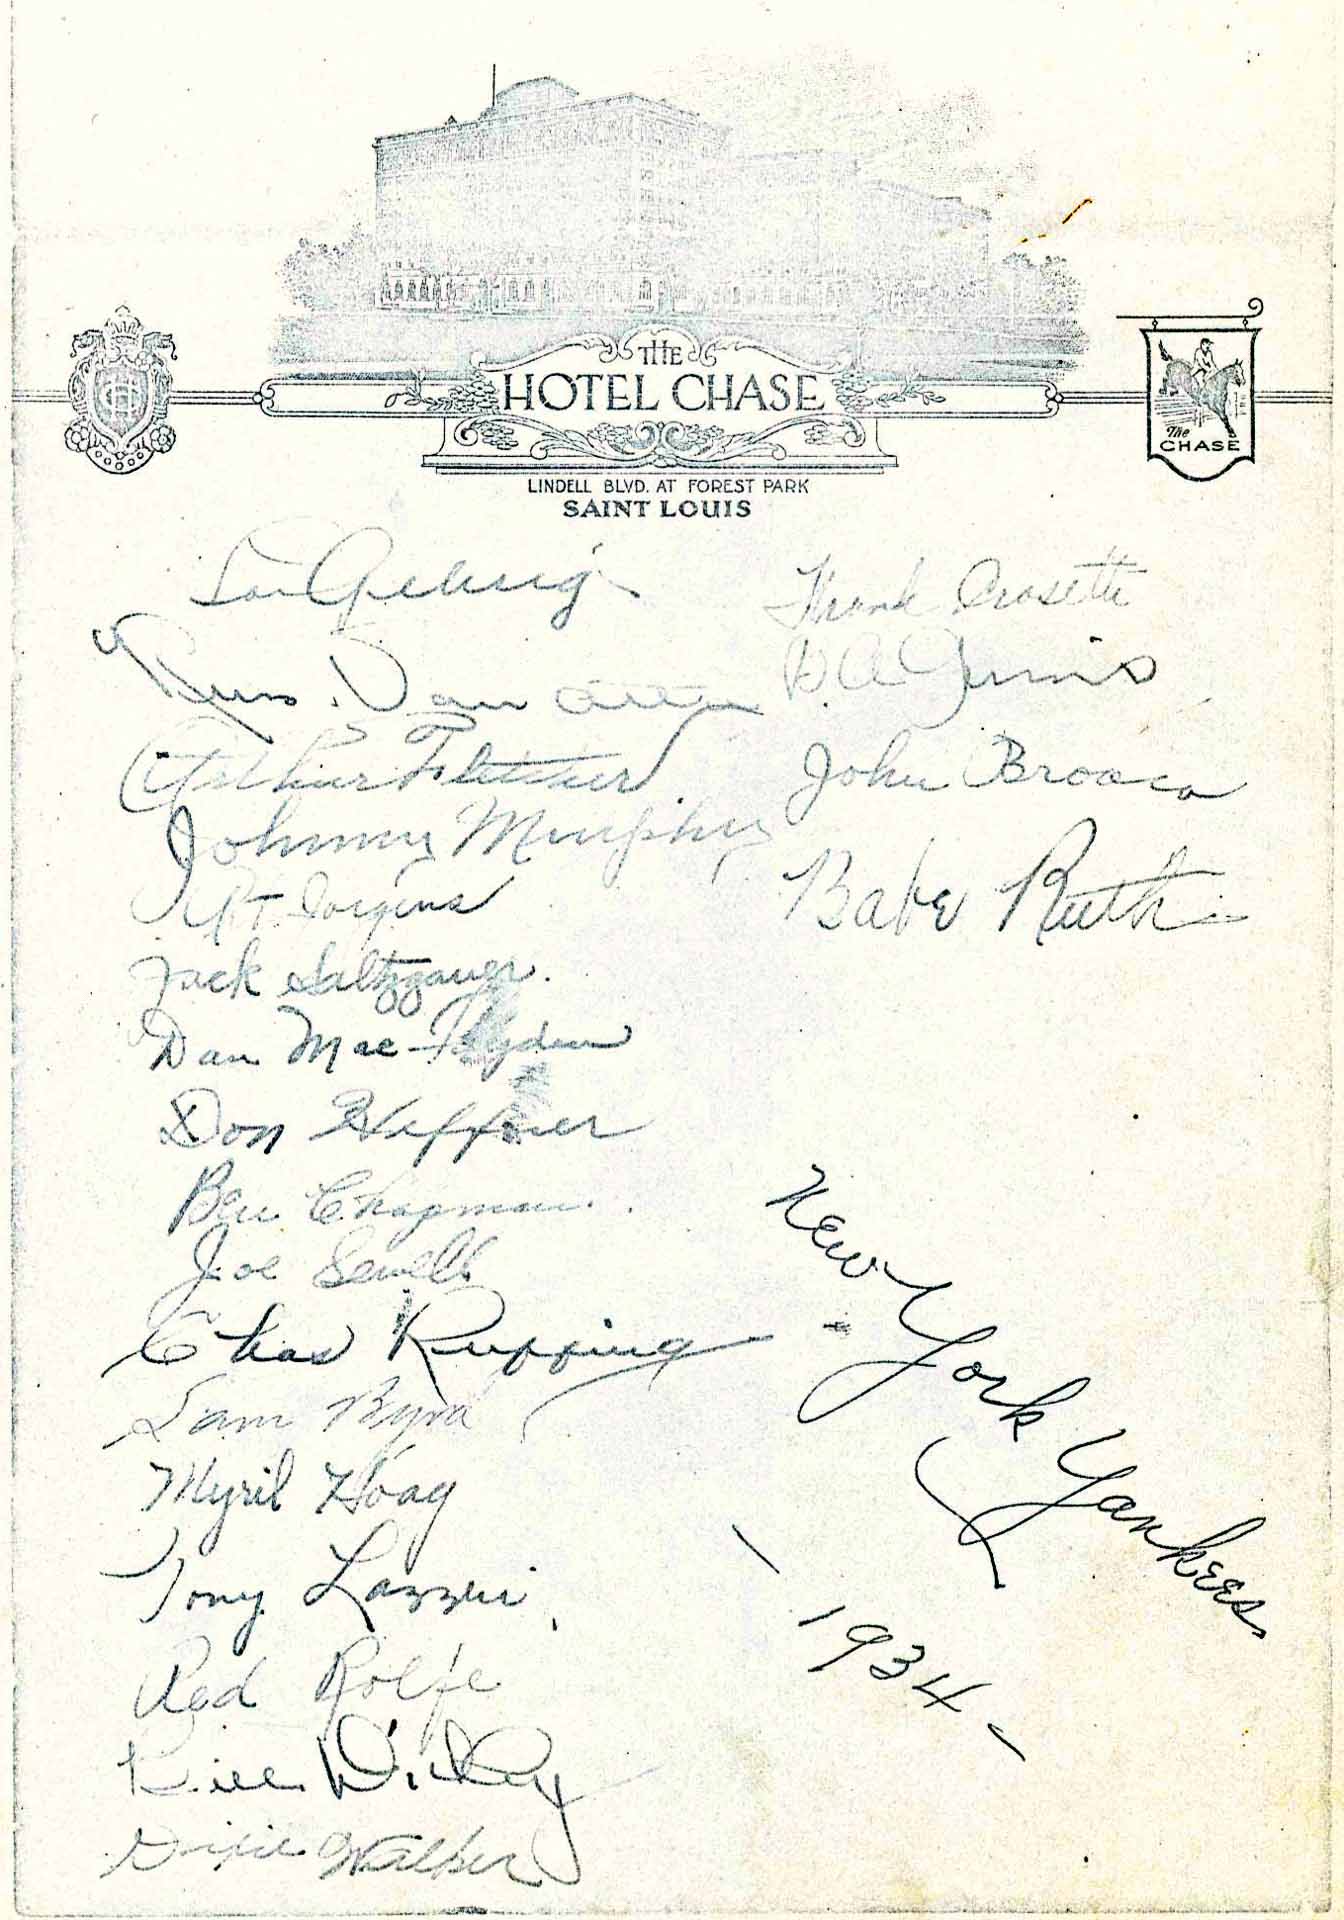 THE
HOTEL CHASE
The
CHASE
LINDELL BLVD. AT FOREST PARK
SAINT LOUIS
Lou Gehrig
"Russ" Van Atta
Arthur Fletcher
Johnny Murphy
Art Jorgens
Jack Saltzgaver.
Dan MacFayden
Don Heffner
Ben Chapman.
Joe Sewell
Chas Ruffing
Sam Byrd
Myril Hoag
Tony Lazzeri
Red Rolfe
Bill Dickey
Dixie Walker
Frank Crosetti
John Broaca
Babe Ruth
New York Yankees
- 1934 -